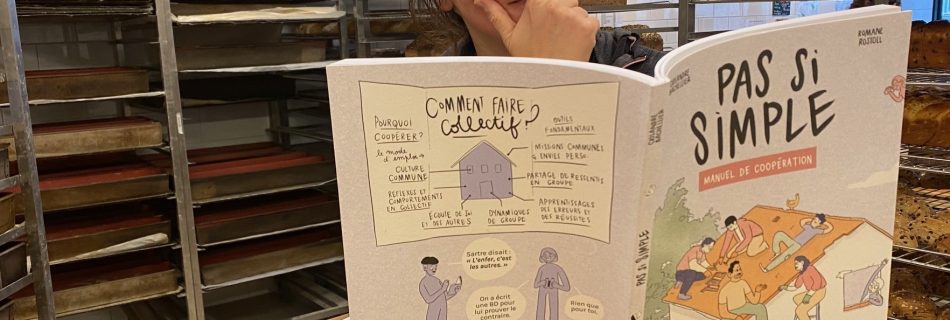 COMMENT FAIRE
Collectif?
POURQUOI
COOPÉRER?
le mode
d'emploi
CULTURE
COMMUNE
RÉFLEXES ET
COMPORTEMENTS
EN COLLECTIF
ÉCOUTE DE SOI
ET DES AUTRES
DYNAMIQUES
DE GROUPE
OUTILS
FONDAMENTAUX
MISSIONS COMMUNES
& ENVIES PERSO
PARTAGE DE RESSENTIS
EN GROUPE
APPRENTISSAGES
DES ERREURS ET
DES RÉUSSITES
Sartre disait :
« L'enfer, c'est
les autres. »
On a écrit
une BD pour
lui prouver le
contraire.
Rien que
pour toi.
PAS SI SIMPLE
ROMANE
PAS SI
SIMPLE
MANUEL DE COOPÉRATION